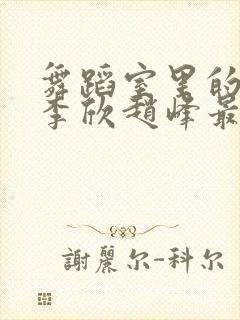 舞蹈室里的
李欣赵峰最
謝麗尔-科尔